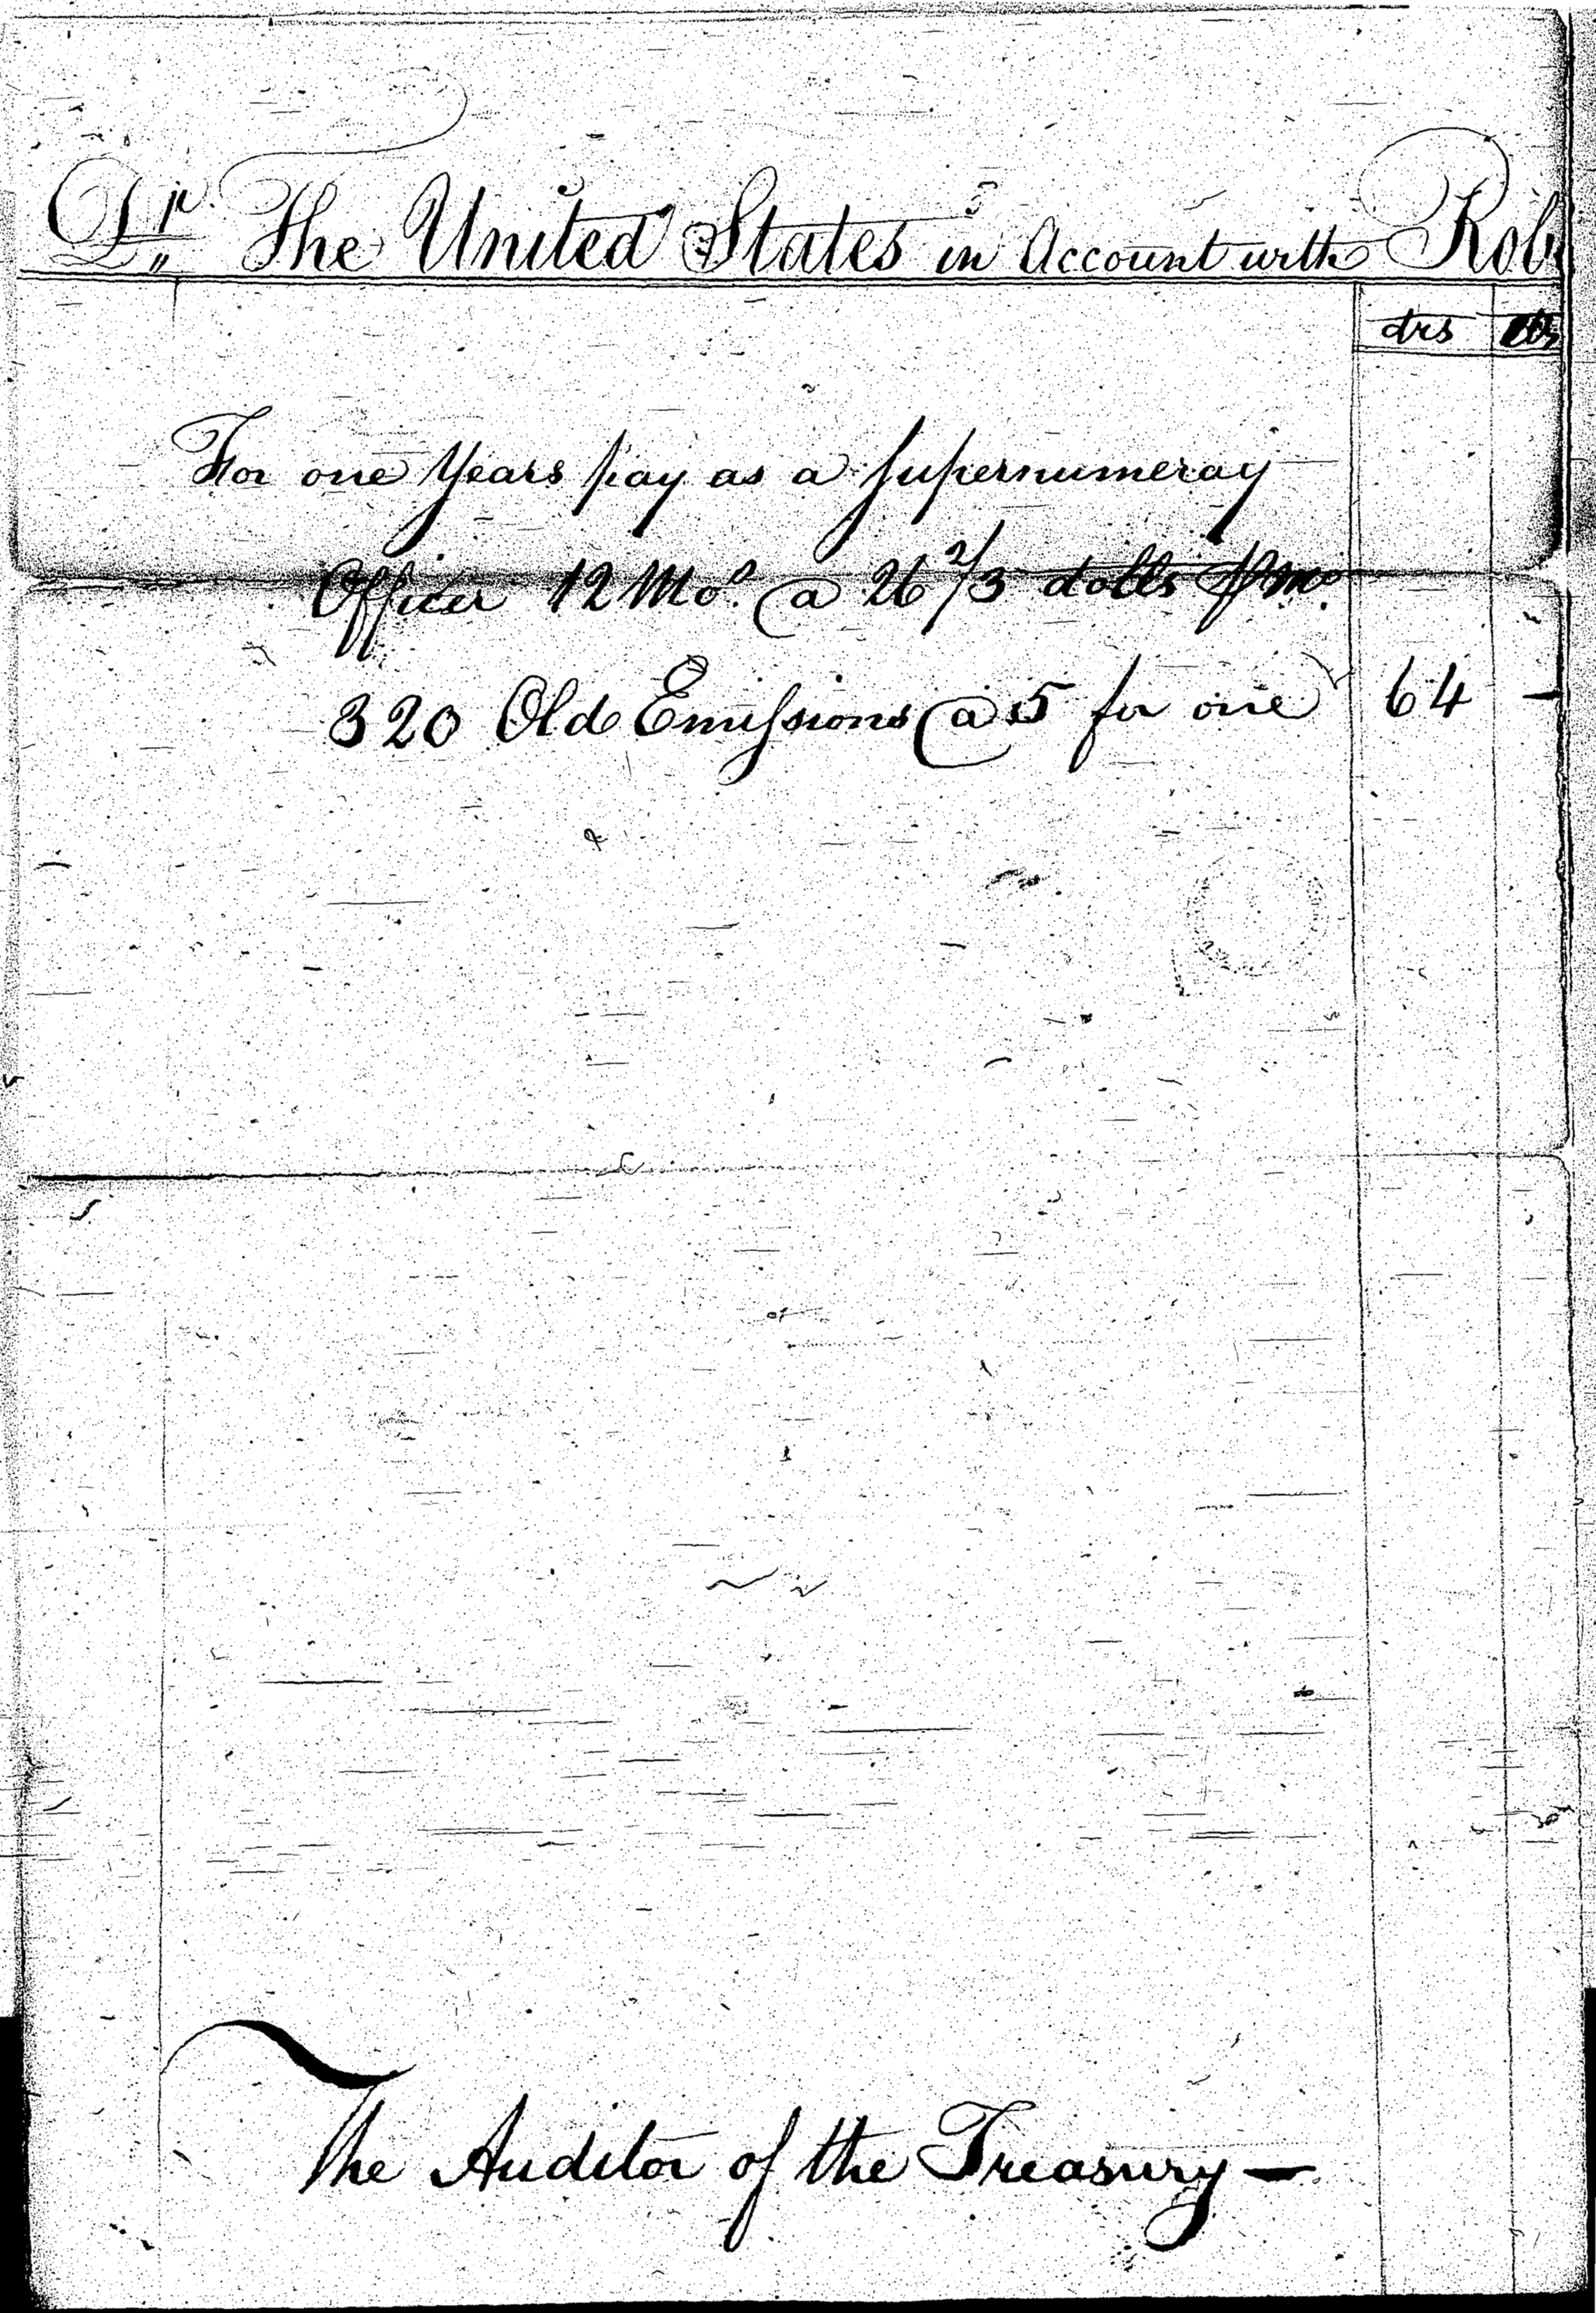 Dr. The United States in Account with Rob
drs cts
For one Years pay as a Supernumeray
Officer 12 Mo. @ 26 2/3 dolls ⅌ mo.
320 Old Emissions @ 5 for one 64 —
The Auditor of the Treasury —